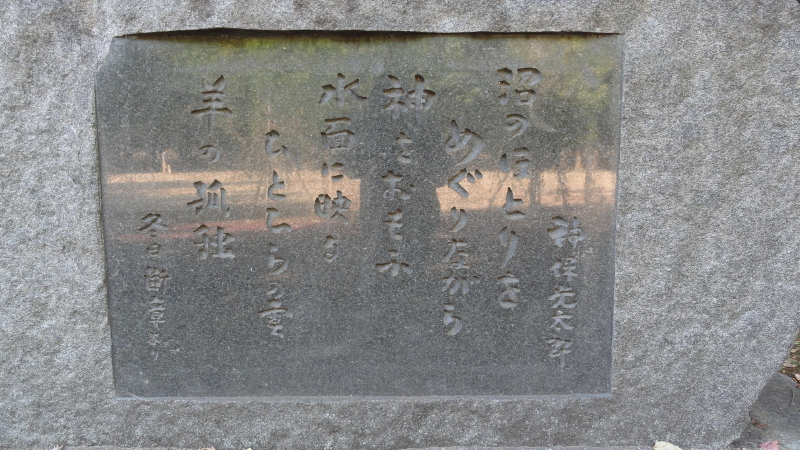 神保光太郎
沼のほとりを
めぐりながら
神をおもふ
水面に映る
ひとひらの雲
羊の孤独
冬日断章より